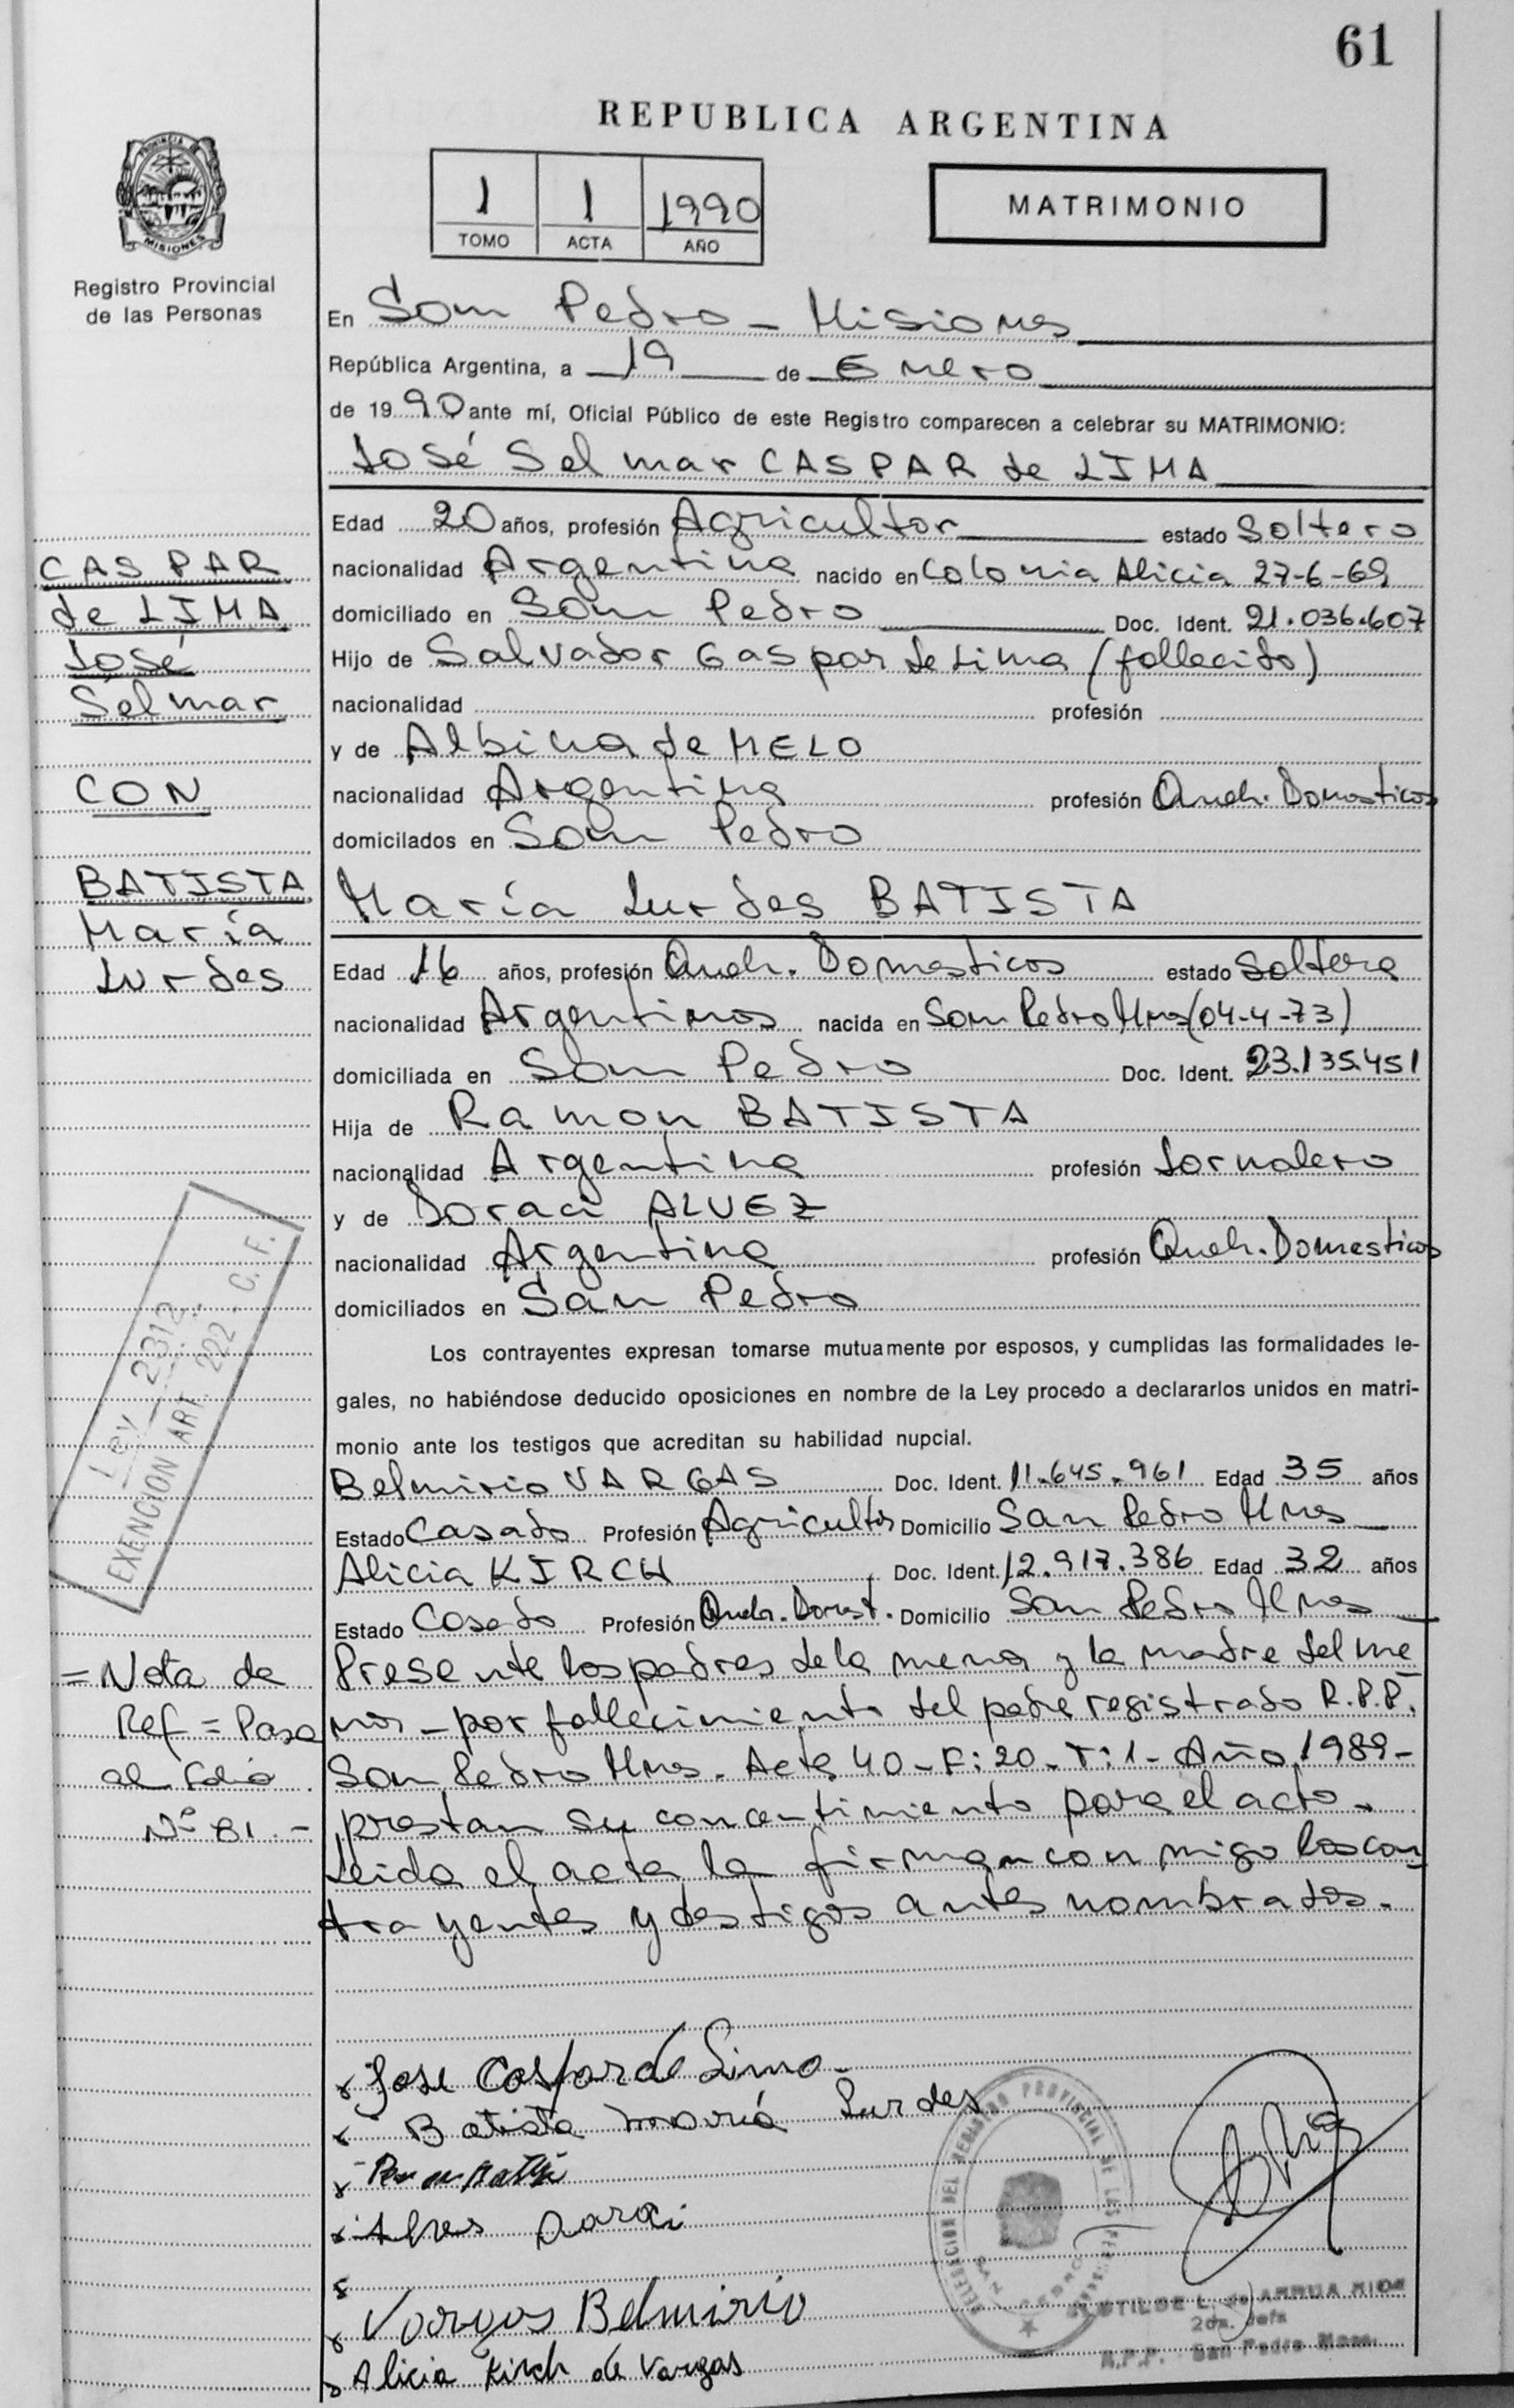 61
REPUBLICA ARGENTINA
1 1 1990
TOMO ACTA AÑO
MATRIMONIO
PROVINCIA DE MISIONES
Registro Provincial
de las Personas
En San Pedro - Misiones
República Argentina, a 19 de Enero
de 1990 ante mí, Oficial Público de este Registro comparecen a celebrar su MATRIMONIO:
José Selmar CASPAR de LIMA
Edad 20 años, profesión Agricultor estado Soltero
nacionalidad Argentina nacido en Colonia Alicia 27-6-69
domiciliado en San Pedro Doc. Ident. 21.036.607
Hijo de Salvador Gaspar de Lima (fallecido)
nacionalidad profesión
y de Albina de MELO
nacionalidad Argentina profesión Queh. Domesticos
domicilados en San Pedro
María Lurdes BATISTA
Edad 16 años, profesión Queh. Domesticos estado Soltera
nacionalidad Argentinos nacida en San Pedro Mnes (04-4-73)
domiciliada en San Pedro Doc. Ident. 23.135.451
Hija de Ramon BATISTA
nacionalidad Argentina profesión Jornalero
y de Doraci ALVEZ
nacionalidad Argentina profesión Queh. Domesticos
domiciliados en San Pedro
Los contrayentes expresan tomarse mutuamente por esposos, y cumplidas las formalidades le-
gales, no habiéndose deducido oposiciones en nombre de la Ley procedo a declararlos unidos en matri-
monio ante los testigos que acreditan su habilidad nupcial.
Belmirio VARGAS Doc. Ident. 11.645.961 Edad 35 años
Estado Casado Profesión Agricultor Domicilio San Pedro Mnes
Alicia KIRCH Doc. Ident. 12.917.386 Edad 32 años
Estado Casado Profesión Queh. Domest. Domicilio San Pedro Mnes
Presente los padres de la menor y la madre del me
nor - por fallecimiento del padre registrado R.P.P.
San Pedro Mnes. Acta 40 - F: 20 - T: 1 - Año 1989 -
prestan su concentimiento para el acto.
Leida el acta la firman con migo los con
trayentes y testigos antes nombrados.
CASPAR
de LIMA
José
Selmar
CON
BATISTA
María
Lurdes
Ley 2312
EXENCION ART. 222 - C. F.
= Nota de
Ref = Pasa
al folio
Nº 81. -
Jose Caspar de Lima
Batista María Lurdes
Alves Doraci
Vargas Belmirio
Alicia Kirch de Vargas
DELEGACION DEL REGISTRO PROVINCIAL DE LAS PERSONAS
SAN PEDRO
2da. Jefa
R.P.P. San Pedro Mnes.